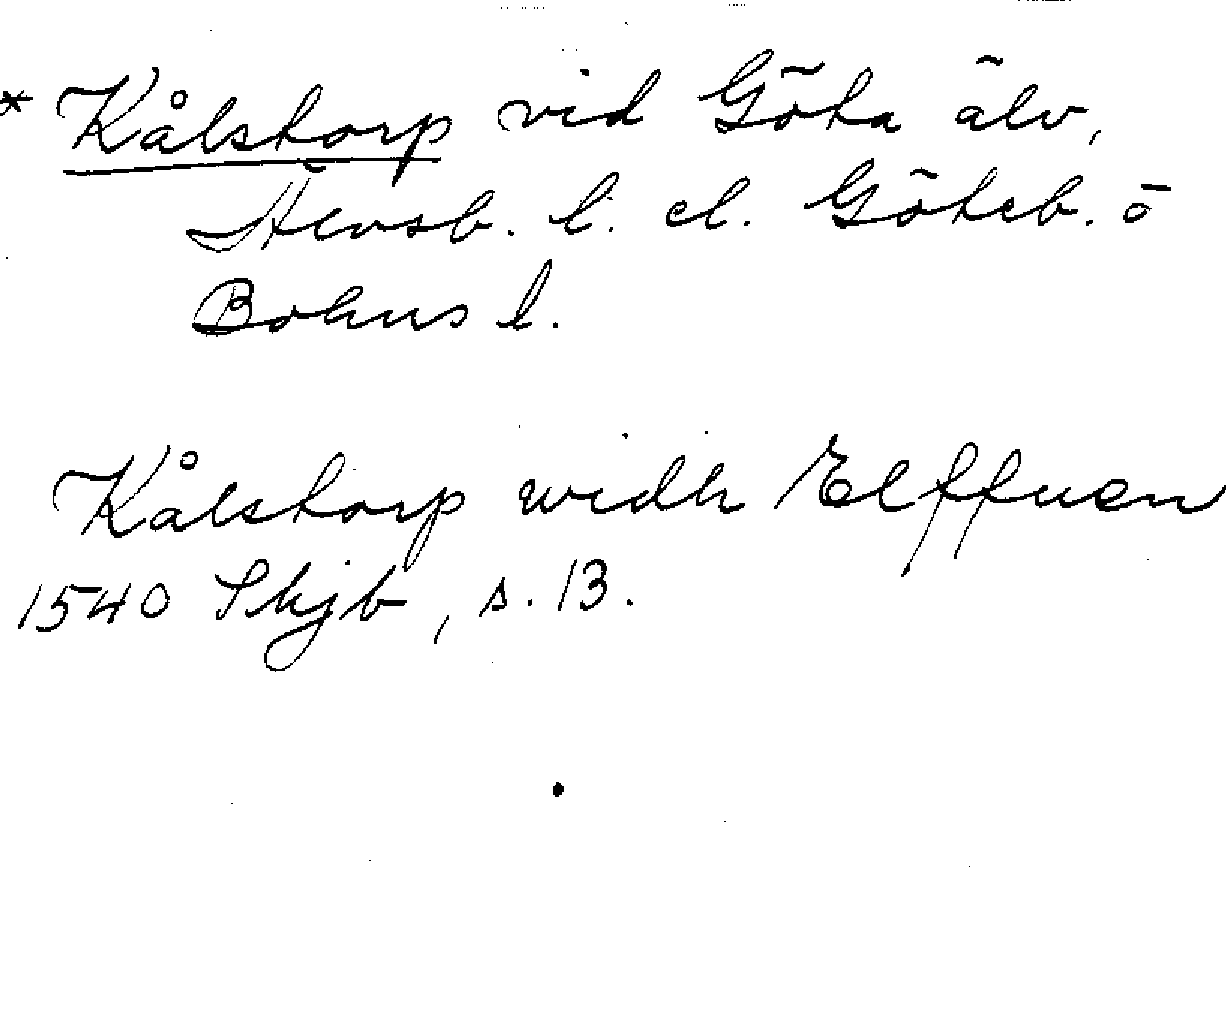 * Kålstorp vid Göta älv,
Älvsb. l. el. Göteb. o
Bohus l.
Kålstorp widh Elffuen
1540 Skjb, s. 13.